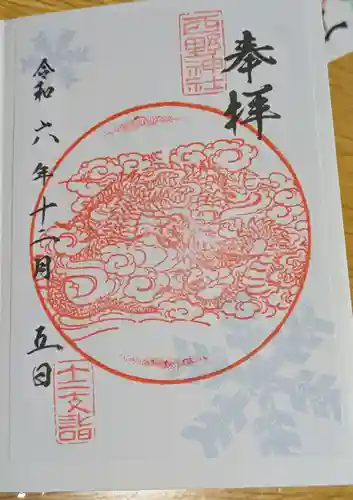 奉拝
西野神社
令和六年十一月五日
十二支詣